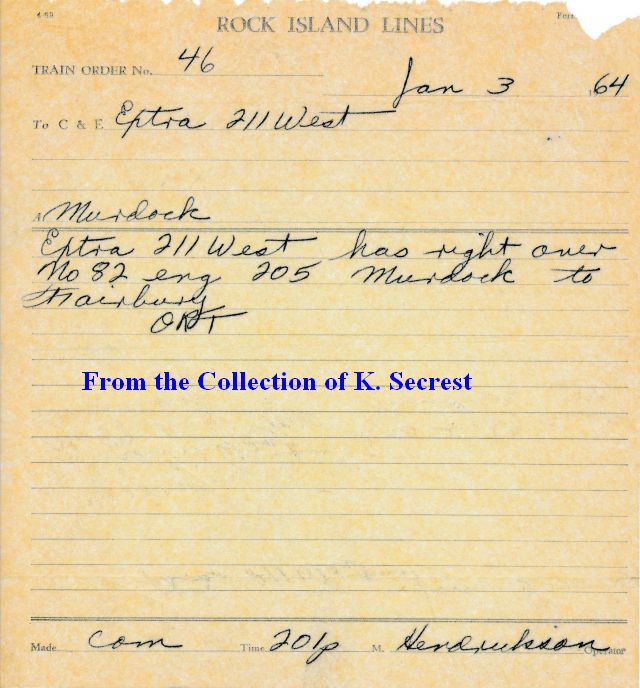 4-59 Form
ROCK ISLAND LINES
TRAIN ORDER No. 46
Jan 3 64
To C & E Extra 211 West
At Murdock
Extra 211 West has right over
No 82 eng 205 Murdock to
Fairbury
ORT
From the Collection of K. Secrest
Made Com Time 201p M. Hendrickson Operator